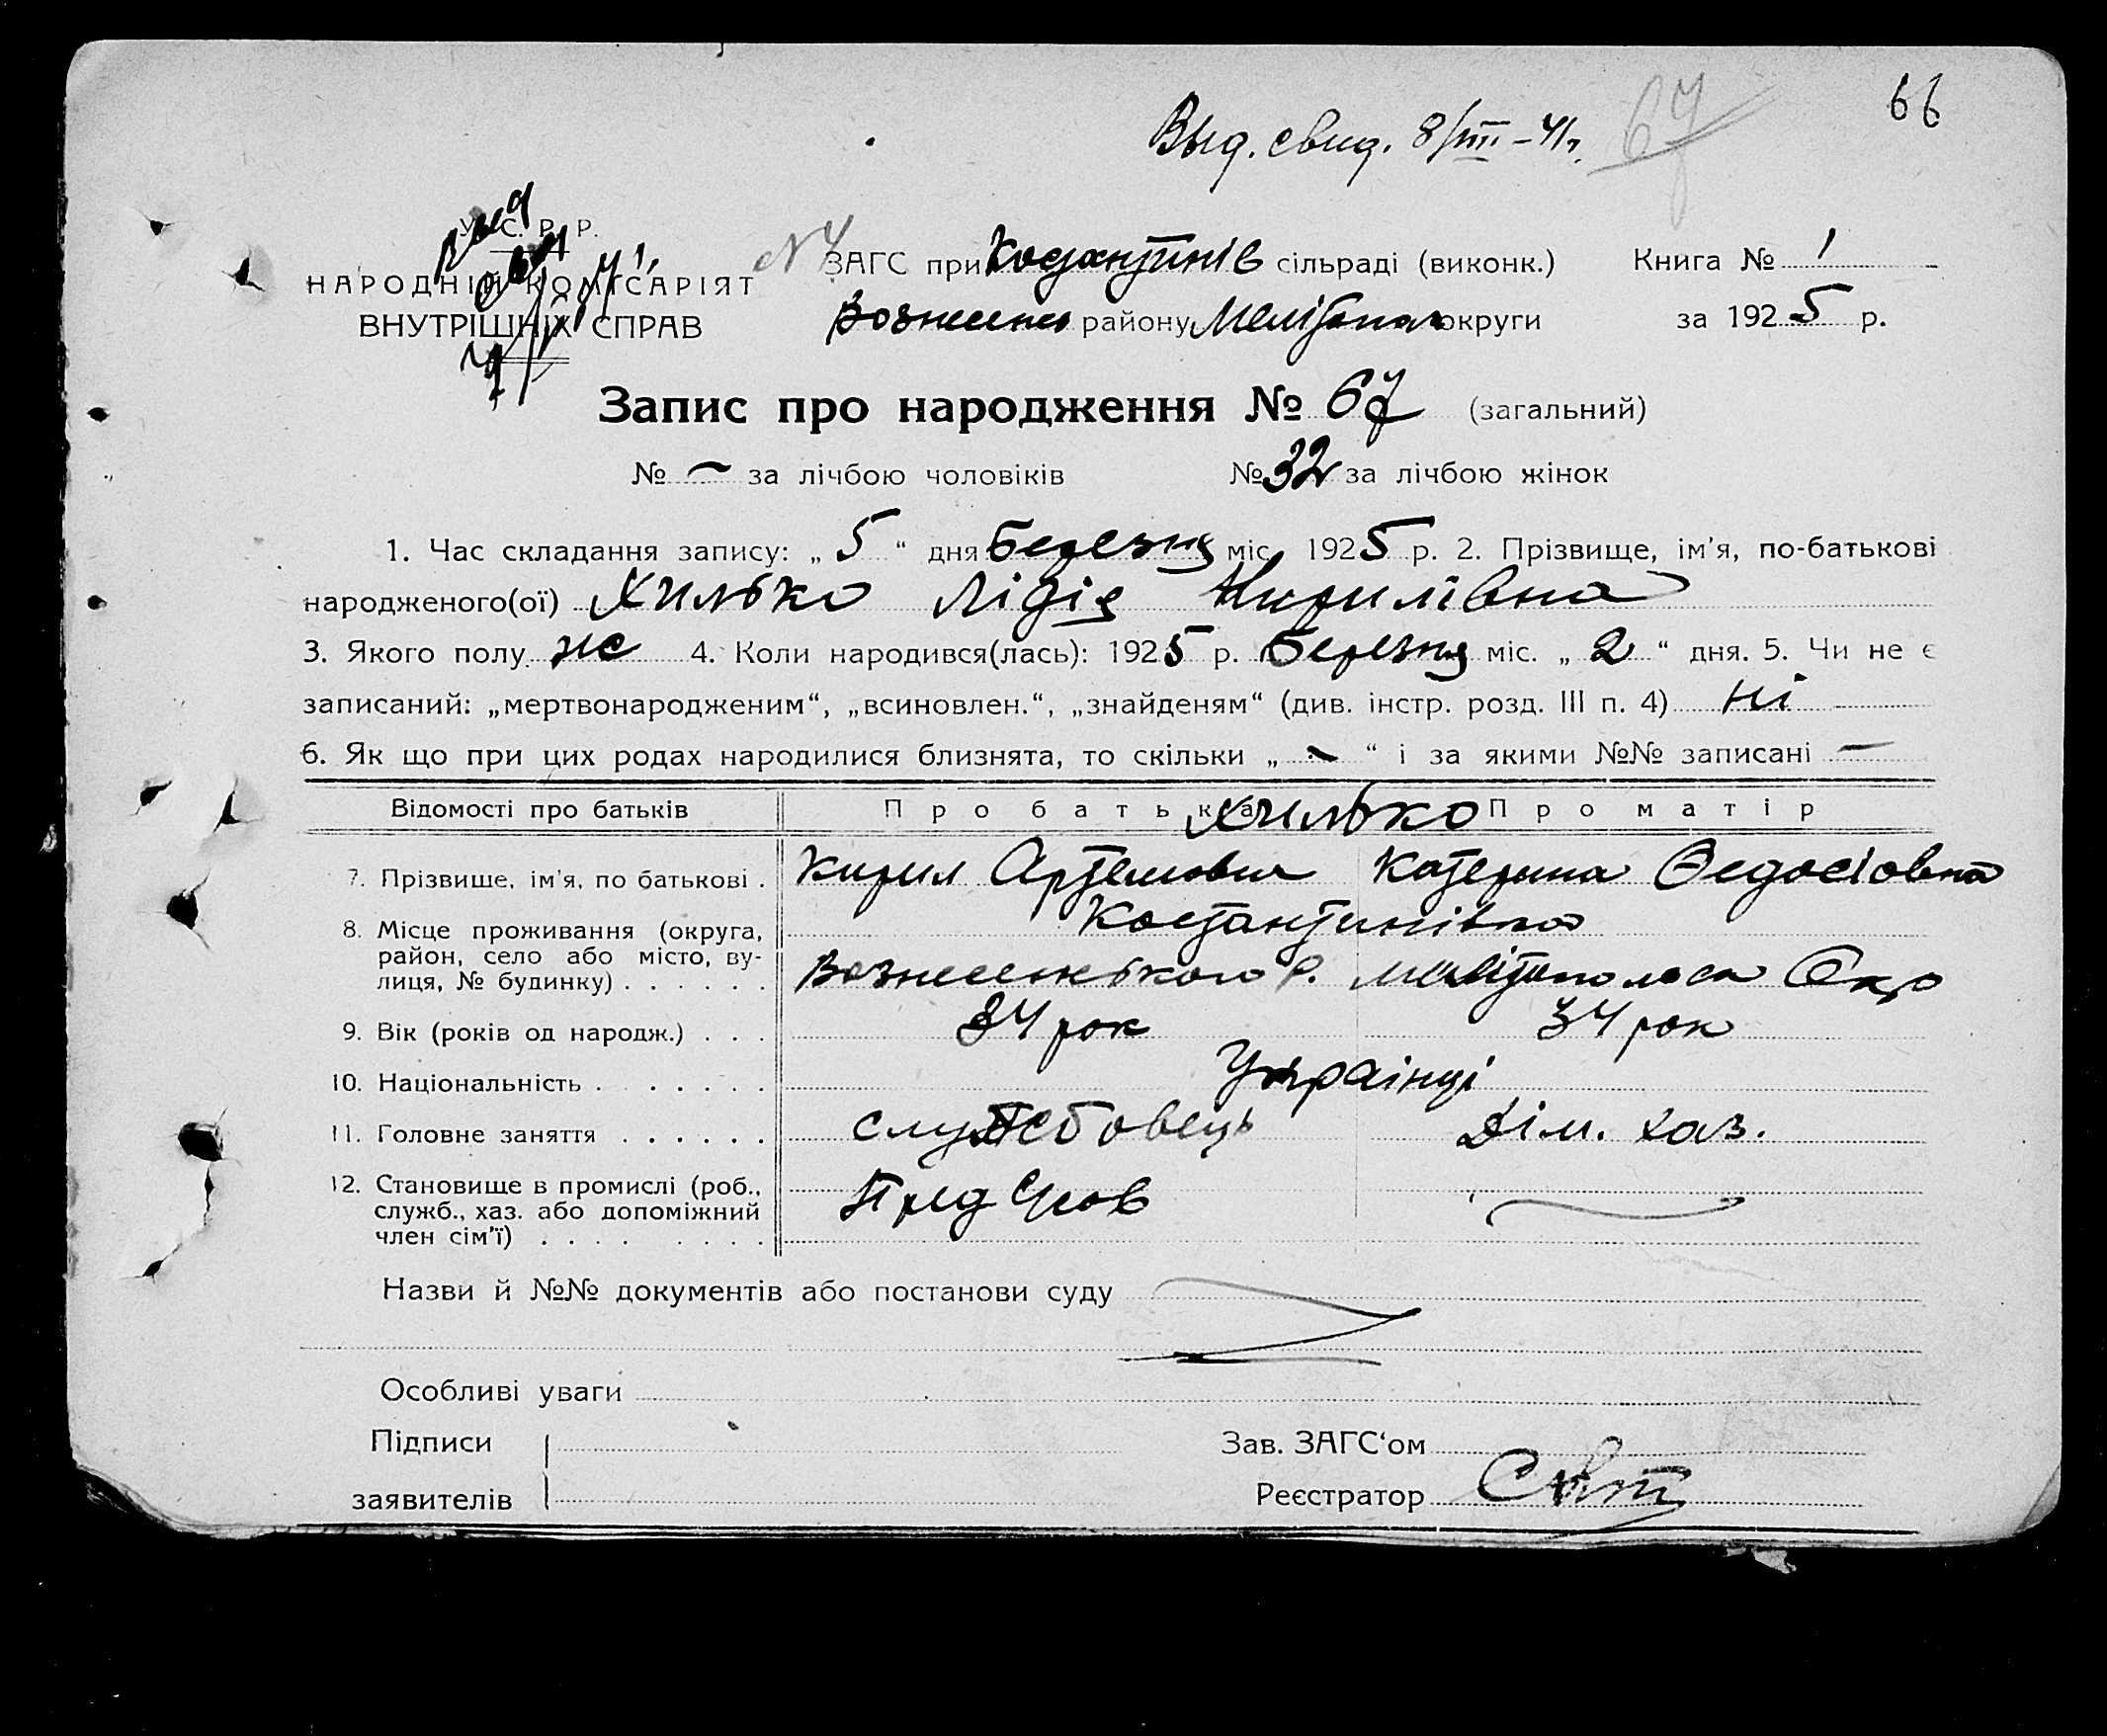 66
Выд. свид. 8/III – 41 г. 67
У. С. Р. Р.
НАРОДНІЙ КОМІСАРІЯТ
ВНУТРІШНІХ СПРАВ
ЗАГС при Костянтинів сільраді (виконк.) Книга № 1
Вознесенськ району Мелітопол округи за 1925 р.
Запис про народження № 67 (загальний)
№ — за лічбою чоловіків № 32 за лічбою жінок
1. Час складання запису: „ 5 “ дня Березня міс. 1925 р. 2. Прізвище, ім'я, по-батькові
народженого(ої) Хилько Лідія Кирилівна
3. Якого полу ж 4. Коли народився(лась): 1925 р. Березня міс. „ 2 “ дня. 5. Чи не є
записаний: „мертвонародженим“, „всиновлен.“, „знайденям“ (див. інстр. розд. III п. 4) ні
6. Як що при цих родах народилися близнята, то скільки „ — “ і за якими №№ записані —
Відомості про батьків Про батька Про матір
Хилько
7. Прізвище, ім'я, по батькові . Кирил Артемович Катерина Федосіовна
8. Місце проживання (округа, район, село або місто, вулиця, № будинку) . . . . . .
Костантинівка
Вознесенького р. Мелітопольск Окр
9. Вік (років од народж.) . . . 34 рок 34 рок
10. Національність . . . . . . . Українці
11. Головне заняття . . . . . . службовець Дім. хаз.
12. Становище в промислі (роб., служб., хаз. або допоміжний член сім'ї) . . . . . . . .
Назви й №№ документів або постанови суду
Особливі уваги
Підписи
заявителів
Зав. ЗАГС'ом
Реєстратор